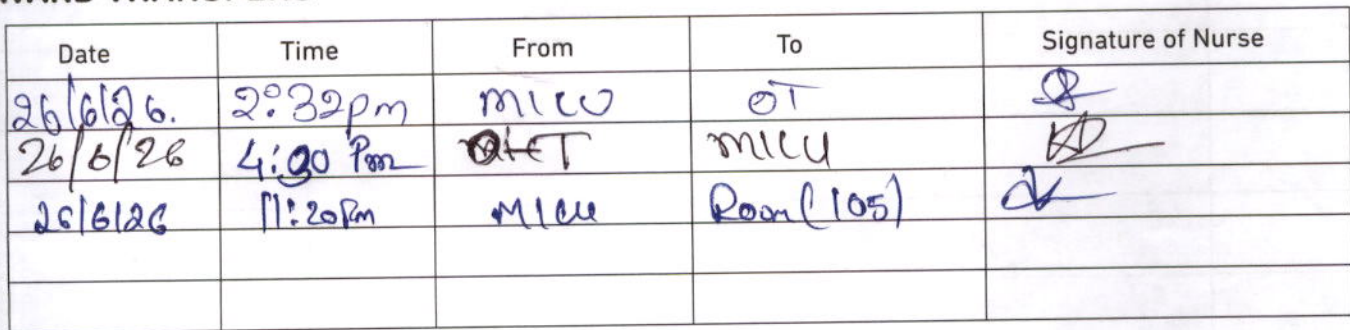 Date Time From To Signature of Nurse
26/6/26. 2:32pm MICU OT
26/6/26 4:00 Pm OT MICU
26/6/26 11:20Pm MICU Room (105)